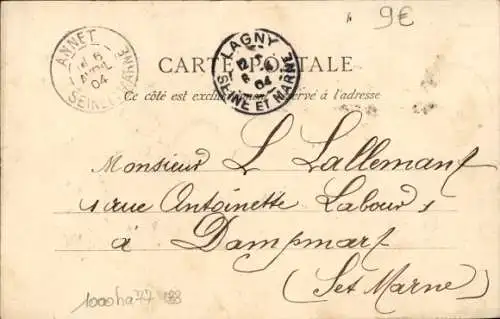 9€
ANNET
6
AVRIL
04
SEINE ET MARNE
LAGNY
6
04
SEINE ET MARNE
CARTE POSTALE
Ce côté est exclusivement réservé à l'adresse
Monsieur L Lallemant
1 rue Antoinette Labour
à Dampmart
(Set Marne)
1000ha77